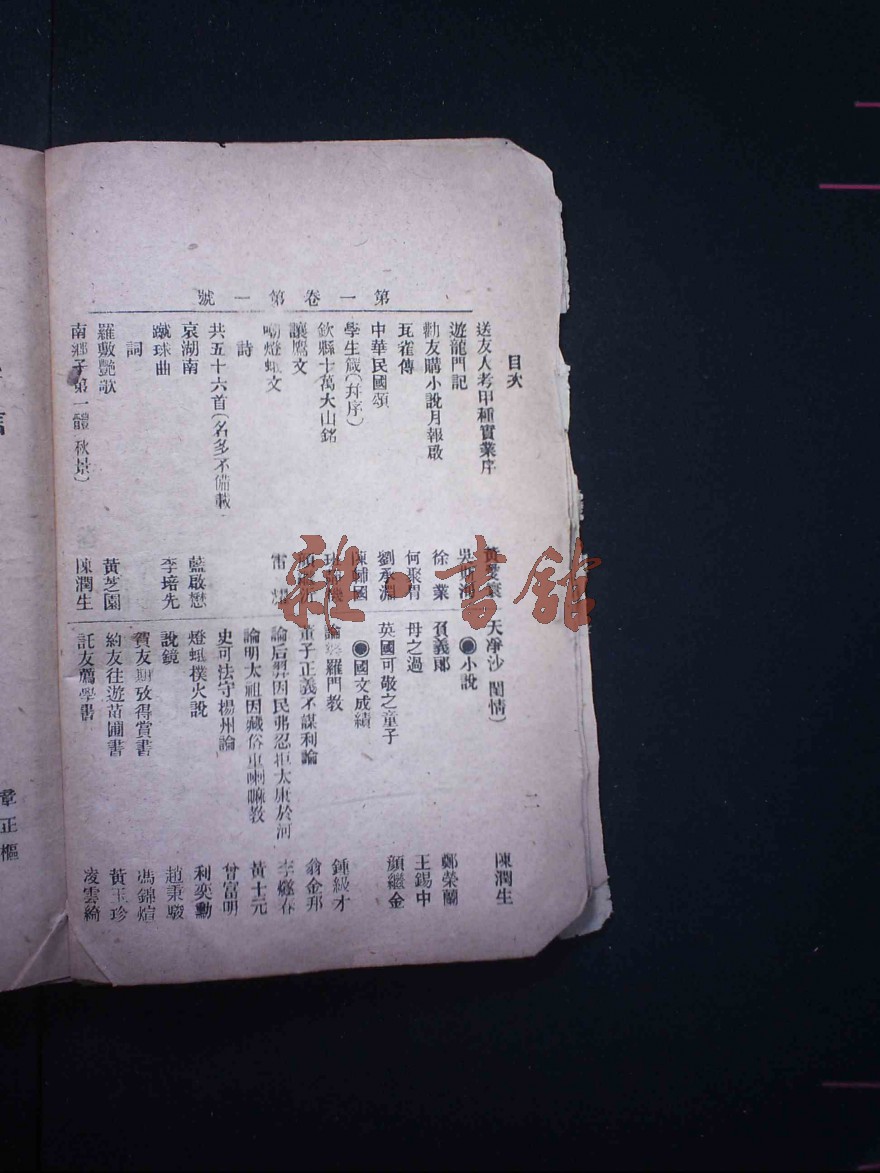 第一卷第一號
目次
二
送友人考甲種實業序
遊龍門記
勸友購小說月報啟 徐業
瓦雀傳 何聚智
中華民國頌 劉承淵
學生箴(幷序) 陳師國
欽縣十萬大山銘
讓鷹文
嘲燈蛾文 雷
詩
共五十六首(名多不備載)
哀湖南 藍啟懋
蹴球曲 李培先
詞
羅敷艷歌 黃芝園
南鄉子第一體 秋景) 陳潤生
天凈沙 閨情) 陳潤生
●小說
孖義郞 鄭榮蘭
母之過 王錫中
英國可敬之童子 顏繼金
●國文成績
論婆羅門教 鍾級才
董子正義不謀利論 翁金邦
論后羿因民弗忍拒太康於河 李燧春
論明太祖因藏俗重喇嘛教 黃十元
史可法守揚州論 曾富明
燈蛾撲火說 利奕勳
說鏡 趙秉駿
賀友期攷得賞書 馮錦煊
約友往遊苗圃書 黃玉珍
託友薦學書 凌雲綺
章正樞
雜·書館